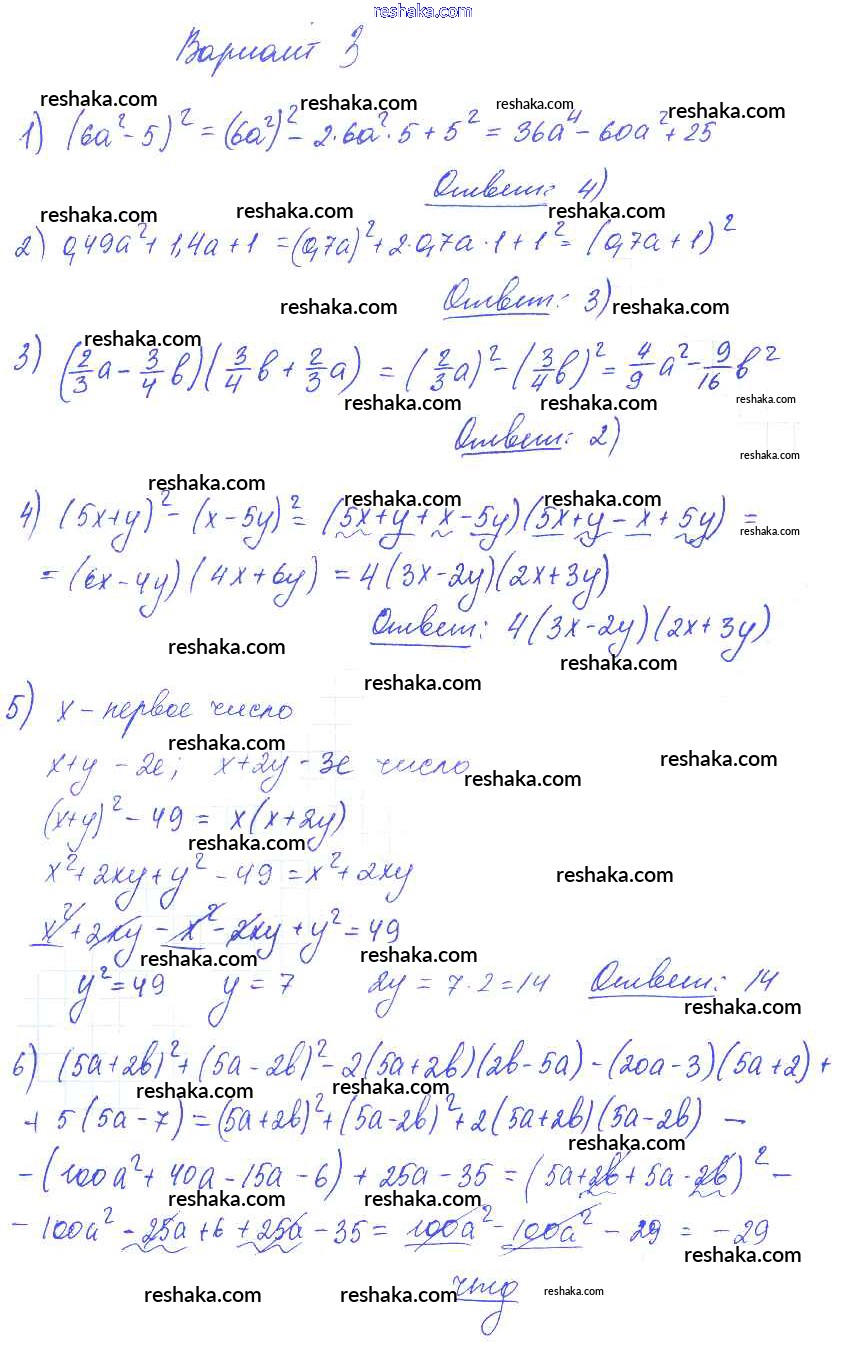 reshaka.com
Вариант 3
reshaka.com reshaka.com reshaka.com reshaka.com
1) (6a² - 5)² = (6a²)² - 2·6a²·5 + 5² = 36a⁴ - 60a² + 25
Ответ: 4)
reshaka.com reshaka.com reshaka.com
2) 0,49a² + 1,4a + 1 = (0,7a)² + 2·0,7a·1 + 1² = (0,7a + 1)²
reshaka.com Ответ: 3) reshaka.com
reshaka.com
3) (2/3 a - 3/4 b)(3/4 b + 2/3 a) = (2/3 a)² - (3/4 b)² = 4/9 a² - 9/16 b²
reshaka.com reshaka.com reshaka.com
Ответ: 2)
reshaka.com
reshaka.com reshaka.com reshaka.com
4) (5x+y)² - (x-5y)² = (5x+y+x-5y)(5x+y-x+5y) =
reshaka.com
= (6x-4y)(4x+6y) = 4(3x-2y)(2x+3y)
Ответ: 4(3x-2y)(2x+3y)
reshaka.com reshaka.com
reshaka.com
5) x - первое число
x+y - 2е; x+2y - 3е число
reshaka.com reshaka.com
(x+y)² - 49 = x(x+2y)
reshaka.com
x² + 2xy + y² - 49 = x² + 2xy
reshaka.com
x² + 2xy - x² - 2xy + y² = 49
reshaka.com reshaka.com
y² = 49 y = 7 2y = 7·2 = 14 Ответ: 14
reshaka.com
6) (5a+2b)² + (5a-2b)² - 2(5a+2b)(2b-5a) - (20a-3)(5a+2) +
reshaka.com reshaka.com
+ 5(5a-7) = (5a+2b)² + (5a-2b)² + 2(5a+2b)(5a-2b) -
reshaka.com
- (100a² + 40a - 15a - 6) + 25a - 35 = (5a+2b+5a-2b)² -
reshaka.com reshaka.com
- 100a² - 25a + 6 + 25a - 35 = 100a² - 100a² - 29 = -29
reshaka.com
reshaka.com reshaka.com чтд reshaka.com